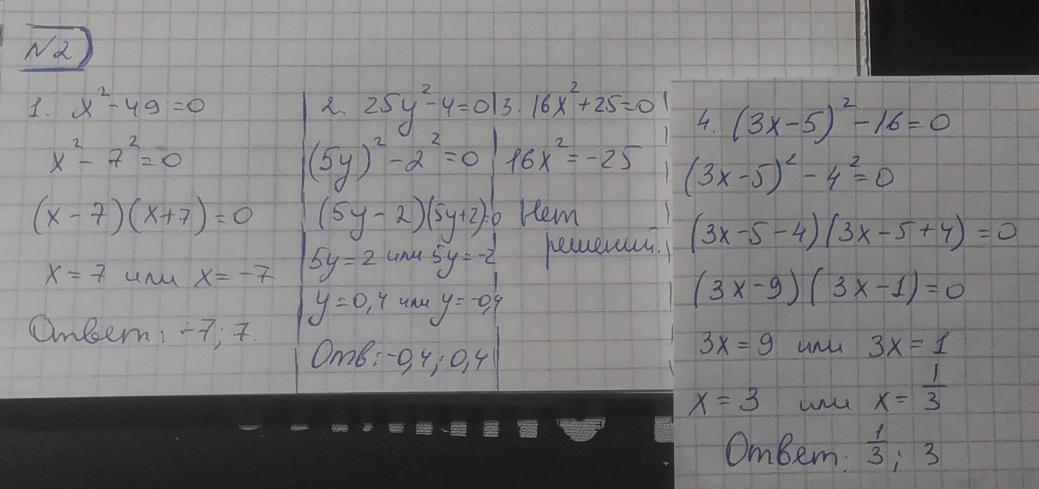 N2
1. x² - 49 = 0
x² - 7² = 0
(x - 7)(x + 7) = 0
x = 7 или x = -7
Ответ: -7; 7.
2. 25y² - 4 = 0
(5y)² - 2² = 0
(5y - 2)(5y + 2) = 0
5y = 2 или 5y = -2
y = 0,4 или y = -0,4
Отв: -0,4; 0,4
3. 16x² + 25 = 0
16x² = -25
Нет
решений.
4. (3x - 5)² - 16 = 0
(3x - 5)² - 4² = 0
(3x - 5 - 4)(3x - 5 + 4) = 0
(3x - 9)(3x - 1) = 0
3x = 9 или 3x = 1
x = 3 или x = 1/3
Ответ: 1/3; 3